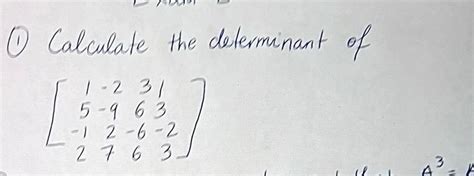 ① Calculate the determinant of
1 -2 3 1
5 -9 6 3
-1 2 -6 -2
2 7 6 3
A³ =